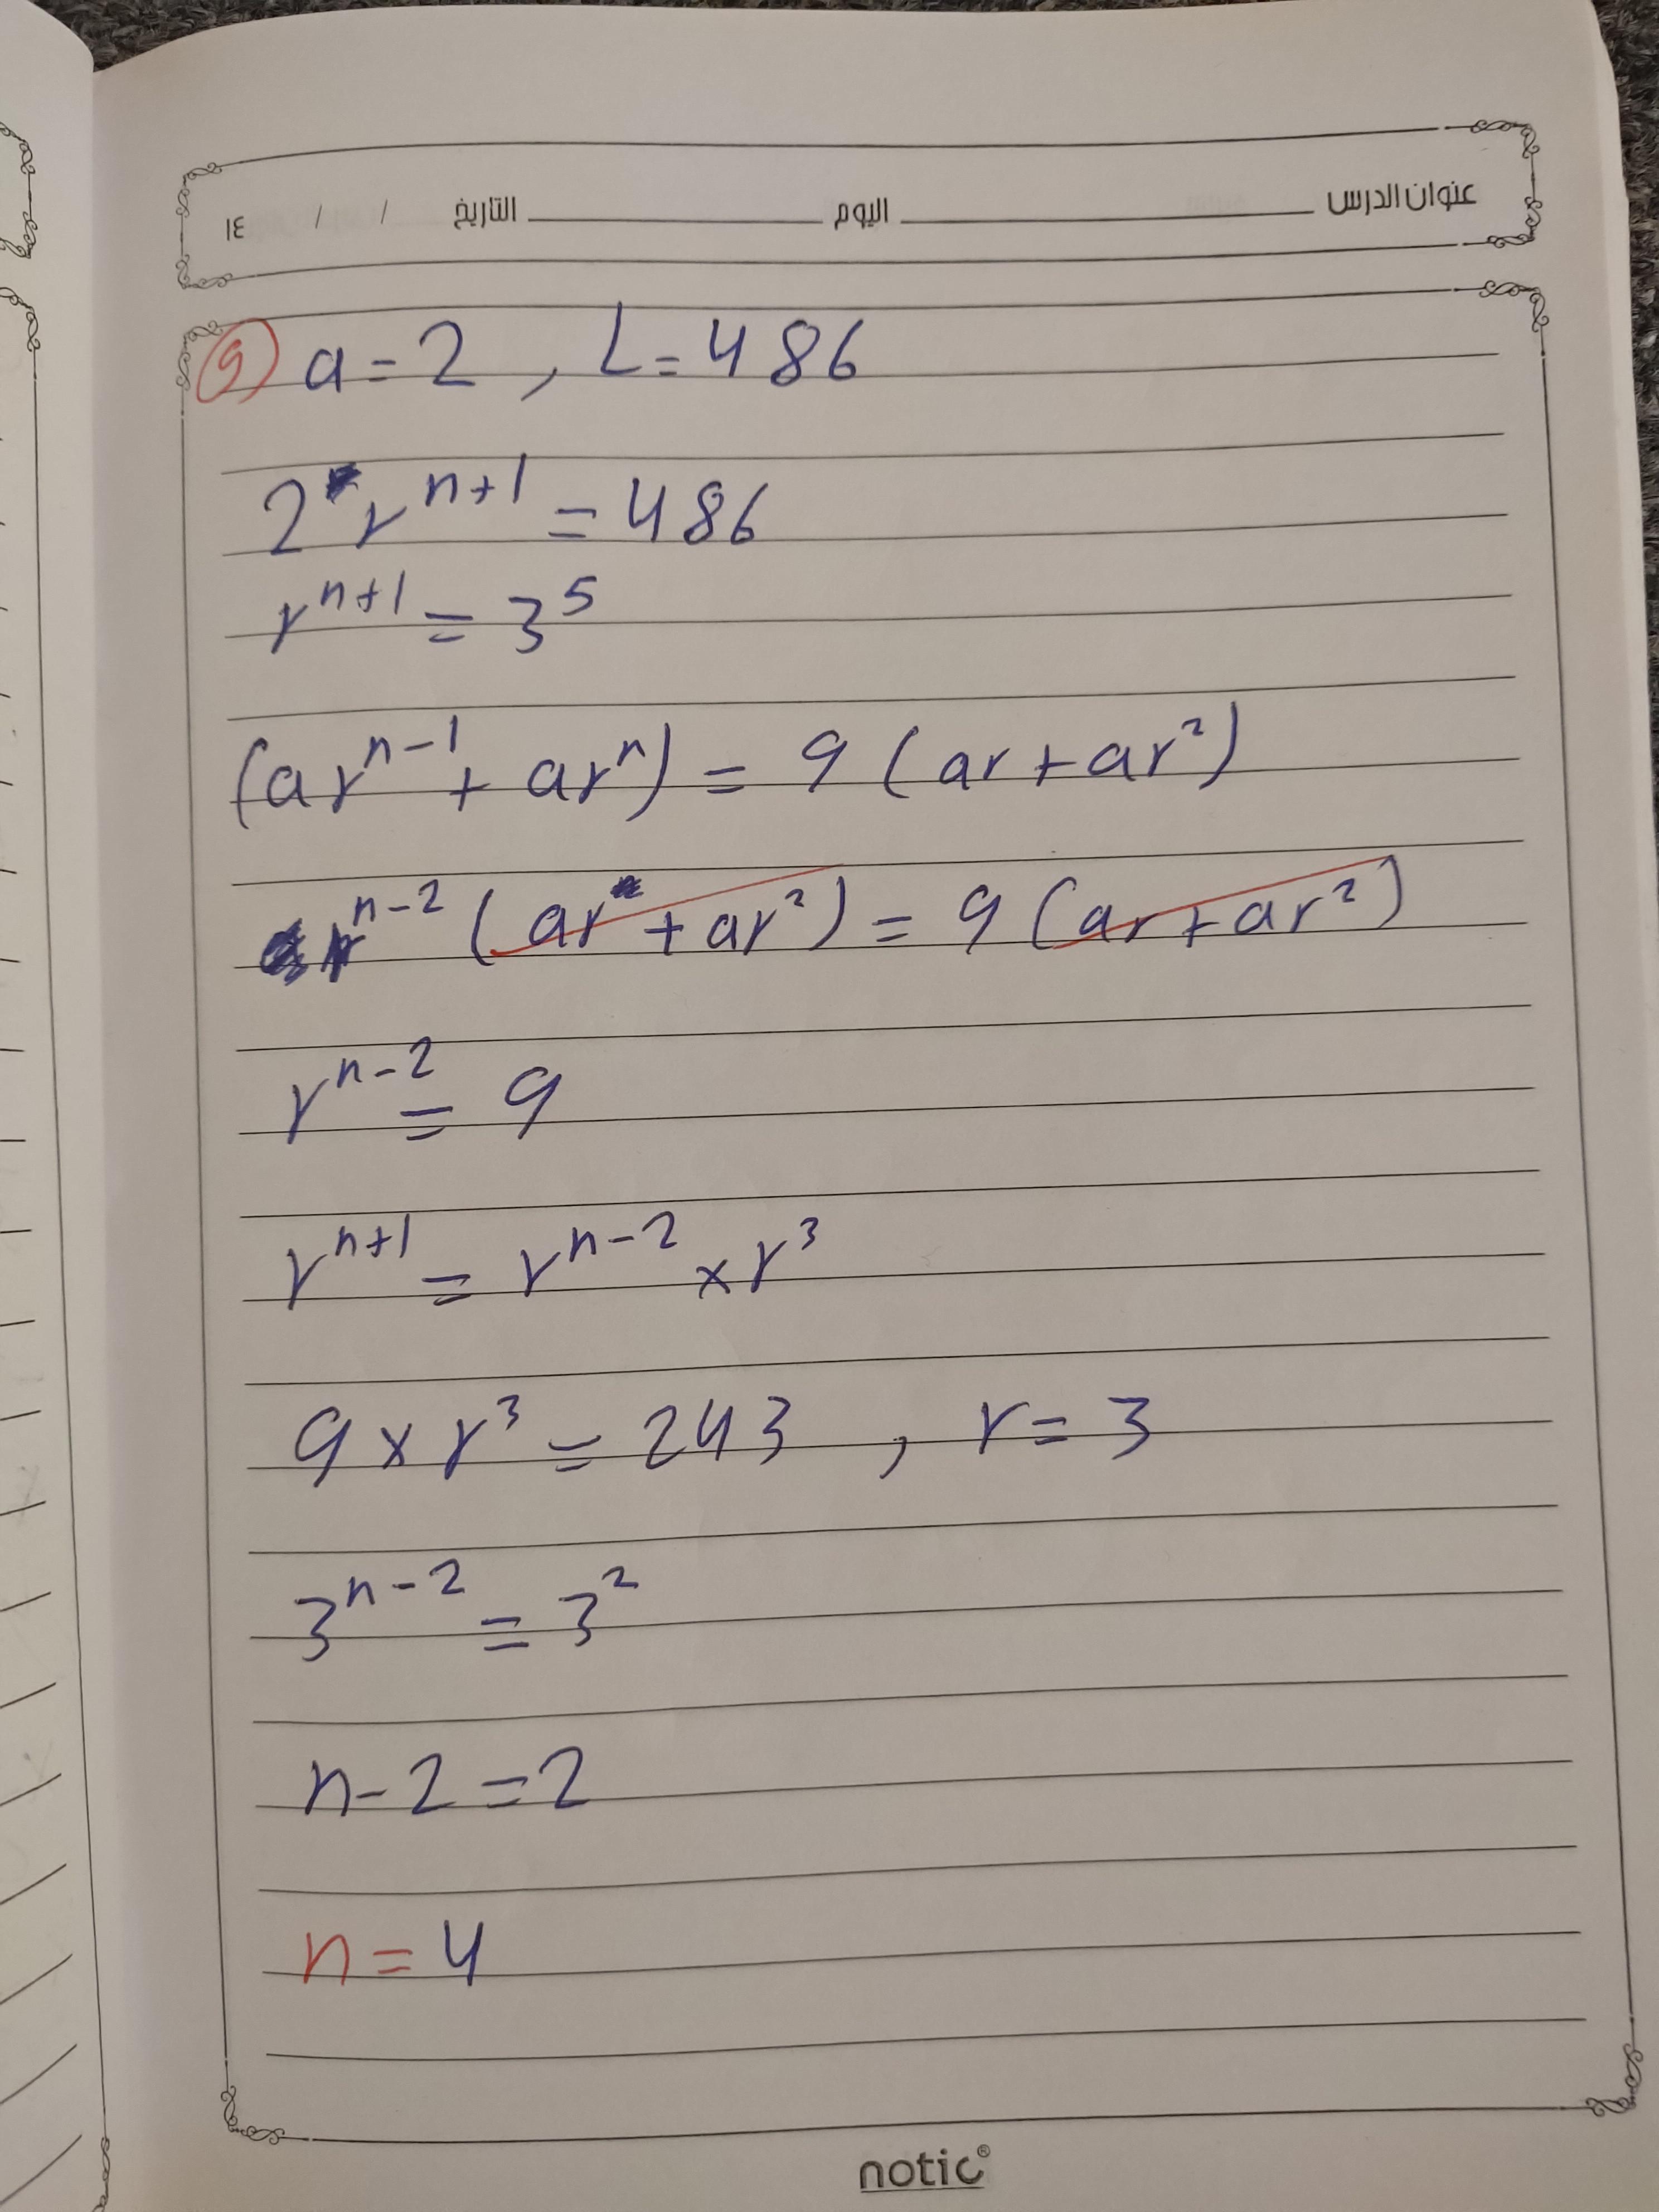 عنوان الدرس اليوم التاريخ / / ١٤
9) a = 2 , L = 486
2 r^{n+1} = 486
r^{n+1} = 3^5
(ar^{n-1} + ar^n) = 9 (ar + ar^2)
r^{n-2} (ar + ar^2) = 9 (ar + ar^2)
r^{n-2} = 9
r^{n+1} = r^{n-2} × r^3
9 × r^3 = 243 , r = 3
3^{n-2} = 3^2
n - 2 = 2
n = 4
notic®